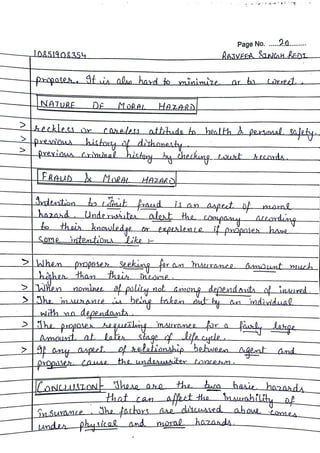 Page No. .....20........
10851908354 RAJVEER SINGH BEDI
proposer. It is also hard to minimize or to correct.
NATURE OF MORAL HAZARD
> Reckless or careless attitude to health & personal safety.
> previous history of dishonesty.
> previous criminal history by checking court records.
FRAUD & MORAL HAZARD
Intention to commit fraud is an aspect of moral
hazard. Underwriter alert the company according
to their knowledge or experience if proposer have
some intentions like :-
> When proposer seeking for an insurance amount much
higher than their income.
> When nominee of policy not among dependants of insured.
> The insurance is being taken out by an individual
with no dependants.
> The proposer requesting insurance for a fairly large
amount at later stage of life cycle.
> If any aspect of relationship between agent and
proposer cause the underwriter concern.
CONCLUSION There are the two basic hazards
that can affect the insurability of
insurance. The factors are discussed above comes
under physical and moral hazards.